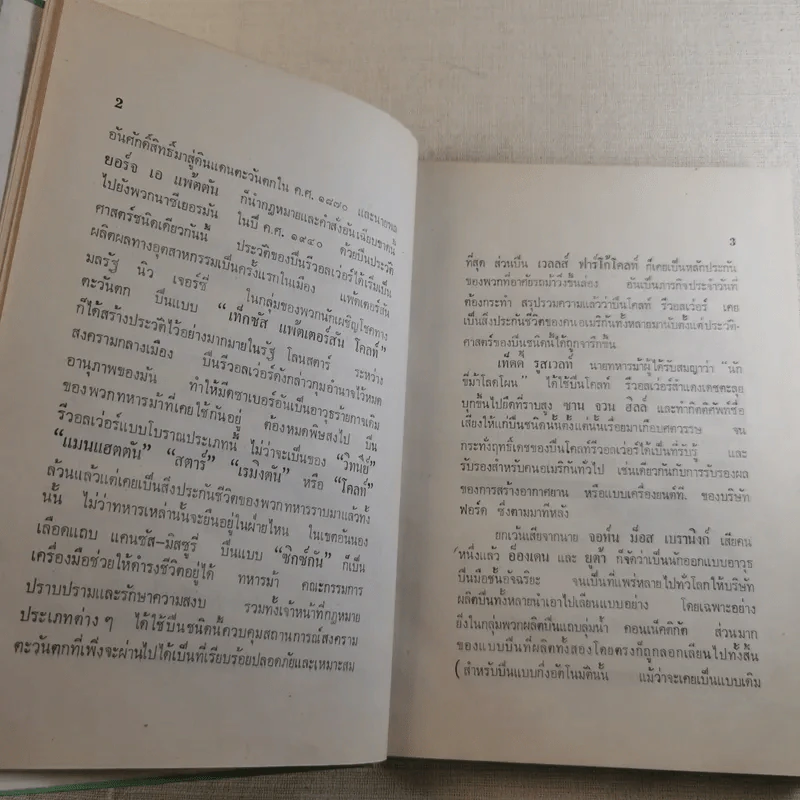 2
อันศักดิ์สิทธิ์มาสู่ดินแดนตะวันตกใน ค.ศ. ๑๘๗๐ และนายพล
ยอร์จ เอ แพ้ตตัน ก็นำกฎหมายและคำสั่งอันเฉียบขาดนี้
ไปยังพวกนาซีเยอรมัน ในปี ค.ศ. ๑๙๔๐ ด้วยปืนประวัติ
ศาสตร์ชนิดเดียวกันนี้ ประวัติของปืนรีวอลเว่อร์ได้เริ่มเป็น
ผลิตผลทางอุตสาหกรรมเป็นครั้งแรกในเมือง แพ้ตเตอร์สัน
มลรัฐ นิว เจอร์ซี่ ในกลุ่มของพวกนักเผชิญโชคทาง
ตะวันตก ปืนแบบ “เท็กซัส แพ้ตเตอร์สัน โคลท์”
ก็ได้สร้างประวัติไว้อย่างมากมายในรัฐ โลนสตาร์ ระหว่าง
สงครามกลางเมือง ปืนรีวอลเว่อร์ดังกล่าวกุมอำนาจไว้หมด
อานุภาพของมัน ทำให้มีดซาเบอร์อันเป็นอาวุธร้ายกาจเดิม
ของพวกทหารม้าที่เคยใช้กันอยู่ ต้องหมดพิษสงไป ปืน
รีวอลเว่อร์แบบโบราณประเภทนี้ ไม่ว่าจะเป็นของ “วิทนี่ย์”
“แมนแฮตตัน” “สตาร์” “เรมิงตัน” หรือ “โคลท์”
ล้วนแล้วแต่เคยเป็นสิ่งประกันชีวิตของพวกทหารราบมาแล้วทั้ง
นั้น ไม่ว่าทหารเหล่านั้นจะยืนอยู่ในฝ่ายไหน ในเขตอันนอง
เลือดแถบ แคนซัส–มิสซูรี่ ปืนแบบ “ซิกซ์กัน” ก็เป็น
เครื่องมือช่วยให้ดำรงชีวิตอยู่ได้ ทหารม้า คณะกรรมการ
ปราบปรามและรักษาความสงบ รวมทั้งเจ้าหน้าที่กฎหมาย
ประเภทต่าง ๆ ได้ใช้ปืนชนิดนี้ควบคุมสถานการณ์สงคราม
ตะวันตกที่เพิ่งจะผ่านไปได้เป็นที่เรียบร้อยปลอดภัยและเหมาะสม
3
ที่สุด ส่วนปืน เวลลส์ ฟาร์โก้โคลท์ ก็เคยเป็นหลักประกัน
ของพวกที่อาศัยรถม้าวิ่งขึ้นล่อง อันเป็นภารกิจประจำวันที่
ต้องกระทำ สรุปรวมความแล้วว่าปืนโคลท์ รีวอลเวอร์ เคย
เป็นสิ่งประกันชีวิตของคนอเมริกันทั้งหลายมานับตั้งแต่ประวัติ-
ศาสตร์ของปืนชนิดนี้ได้ถูกจารึกขึ้น
เท็ดดี้ รูสเวลท์ นายทหารม้าผู้ได้รับสมญาว่า “นัก
ขี่ม้าโลดโผน” ได้ใช้ปืนโคลท์ รีวอลเวอร์สำแดงเดชตะลุย
บุกขึ้นไปยึดที่ราบสูง ซาน จวน ฮิลล์ และทำกิตติศัพท์ชื่อ
เสียงให้แก่ปืนชนิดนี้ตั้งแต่นั้นเรื่อยมาเกือบศตวรรษ จน
กระทั่งฤทธิ์เดชของปืนโคลท์รีวอลเวอร์ได้เป็นที่รับรู้ และ
รับรองสำหรับคนอเมริกันทั่วไป เช่นเดียวกันกับการรับรองผล
ของการสร้างอากาศยาน หรือแบบเครื่องยนต์ที. ของบริษัท
ฟอร์ด ซึ่งตามมาทีหลัง
ยกเว้นเสียจากนาย จอห์น ม็อส เบรานิงก์ เสียคน
หนึ่งแล้ว อ็องเดน และ ยูต้า ก็จัดว่าเป็นนักออกแบบอาวุธ
ปืนมือชั้นอัจฉริยะ จนเป็นที่แพร่หลายไปทั่วโลกให้บริษัท
ผลิตปืนทั้งหลายนำเอาไปเลียนแบบอย่าง โดยเฉพาะอย่าง
ยิ่งในกลุ่มพวกผลิตปืนแถบลุ่มน้ำ คอนเน็คติกัต ส่วนมาก
ของแบบปืนที่ผลิตทั้งสองโดยตรงก็ถูกลอกเลียนไปทั้งสิ้น
(สำหรับปืนแบบกึ่งอัตโนมัตินั้น แม้ว่าจะเคยเป็นแบบเดิม